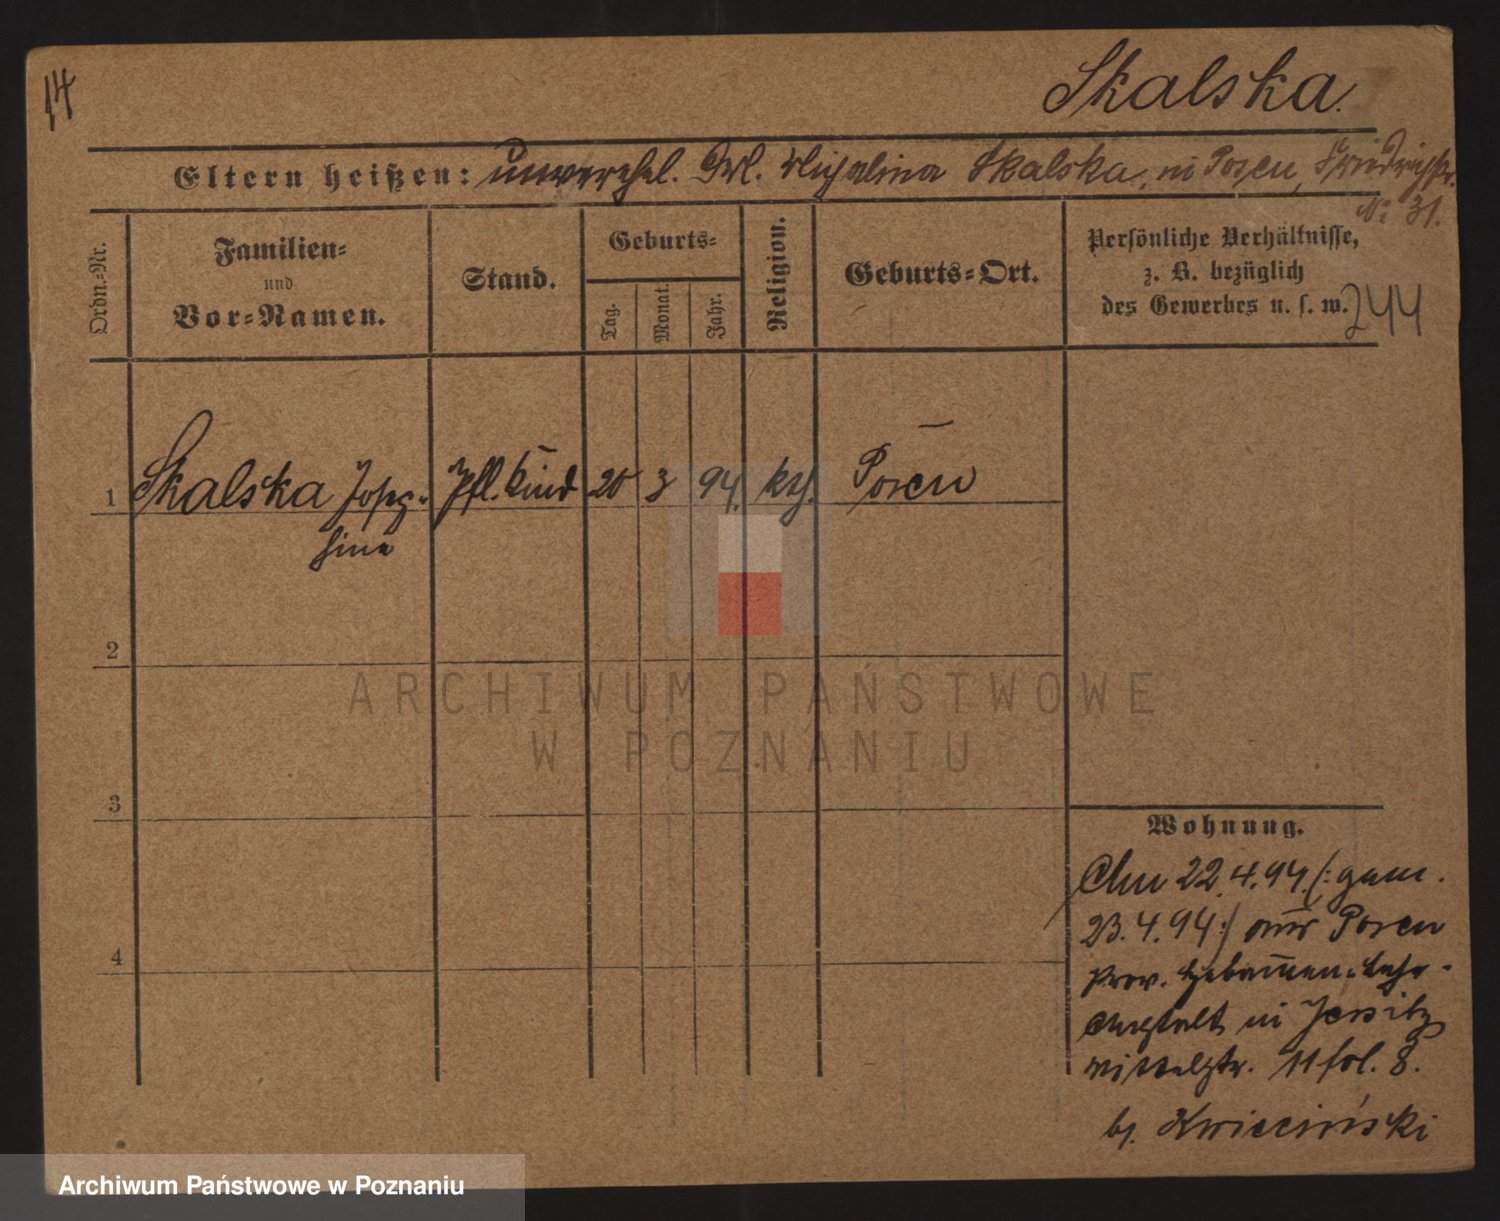 14
Skalska.
Eltern heißen: unverehel. Skalska, in Posen, Friedrichstr.
No 31.
Ordn.-Nr.
Familien-
und
Vor-Namen.
Stand.
Geburts-
Tag.
Monat.
Jahr.
Religion.
Geburts-Ort.
Persönliche Verhältnisse,
z. B. bezüglich
des Gewerbes u. s. w.
244
1 Skalska Jose- Pfl. Kind 20 3 94. kth. Posen
fine
2
3
4
Wohnung.
Am 22.4.94 (: gem.
23.4.94 :) aus Posen
Prov. Hebammen-Lehr-
Anstalt in Jersitz
11 fol. 8.
b. Kwieciński
ARCHIWUM PAŃSTWOWE
W POZNANIU
Archiwum Państwowe w Poznaniu